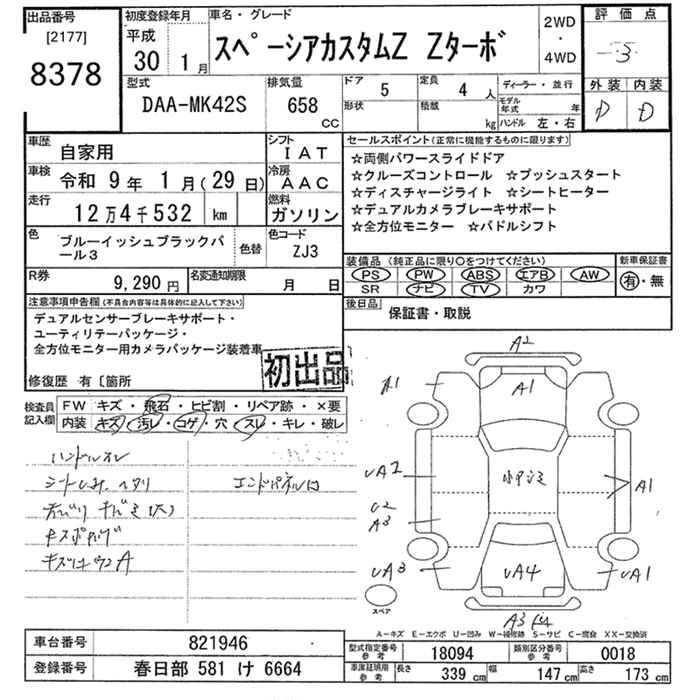 出品番号
[2177]
8378
初度登録年月
平成
30 1月
車名・グレード
スペーシアカスタムZ Zターボ
2WD
・
4WD
評価点
3
外装 内装
D D
型式
DAA-MK42S
排気量
658 CC
ドア 5
形状
定員 4 人
積載 kg
ディーラー・並行
モデル年式 年
ハンドル 左・右
車歴 自家用
車検 令和 9年 1月(29日)
走行 12万4千532 km
色 ブルーイッシュブラックパール3
色替
シフト IAT
冷房 AAC
燃料 ガソリン
色コード ZJ3
R券 9,290円
名変通知期限 月 日
セールスポイント(正常に機能するものに限ります)
☆両側パワースライドドア
☆クルーズコントロール ☆プッシュスタート
☆ディスチャージライト ☆シートヒーター
☆デュアルカメラブレーキサポート
☆全方位モニター ☆パドルシフト
装備品(純正品に限り○をつけてください)
PS PW ABS エアB AW
SR ナビ TV カワ
新車保証書
有・無
後日品 保証書・取説
注意事項申告欄(不具合内容等は具体的に記入して下さい)
デュアルセンサーブレーキサポート・
ユーティリテーパッケージ・
全方位モニター用カメラパッケージ装着車
修復歴 有〔箇所
初出品
検査員記入欄
FW キズ・飛石・ヒビ割・リペア跡・×要
内装 キズ・汚レ・コゲ・穴・スレ・キレ・破レ
ハンドルスレ
エンドパネル凹
A2
A1
A1
UA2
U2
A3
A1
UA3
UA4
UA1
スペア
A3
A-キズ E-エクボ U-凹み W-補修跡 S-サビ C-腐食 XX-交換済
車台番号 821946
登録番号 春日部 581 け 6664
型式指定番号 参考 18094
類別区分番号 参考 0018
車庫証明用 参考 長さ 339 cm 幅 147 cm 高さ 173 cm